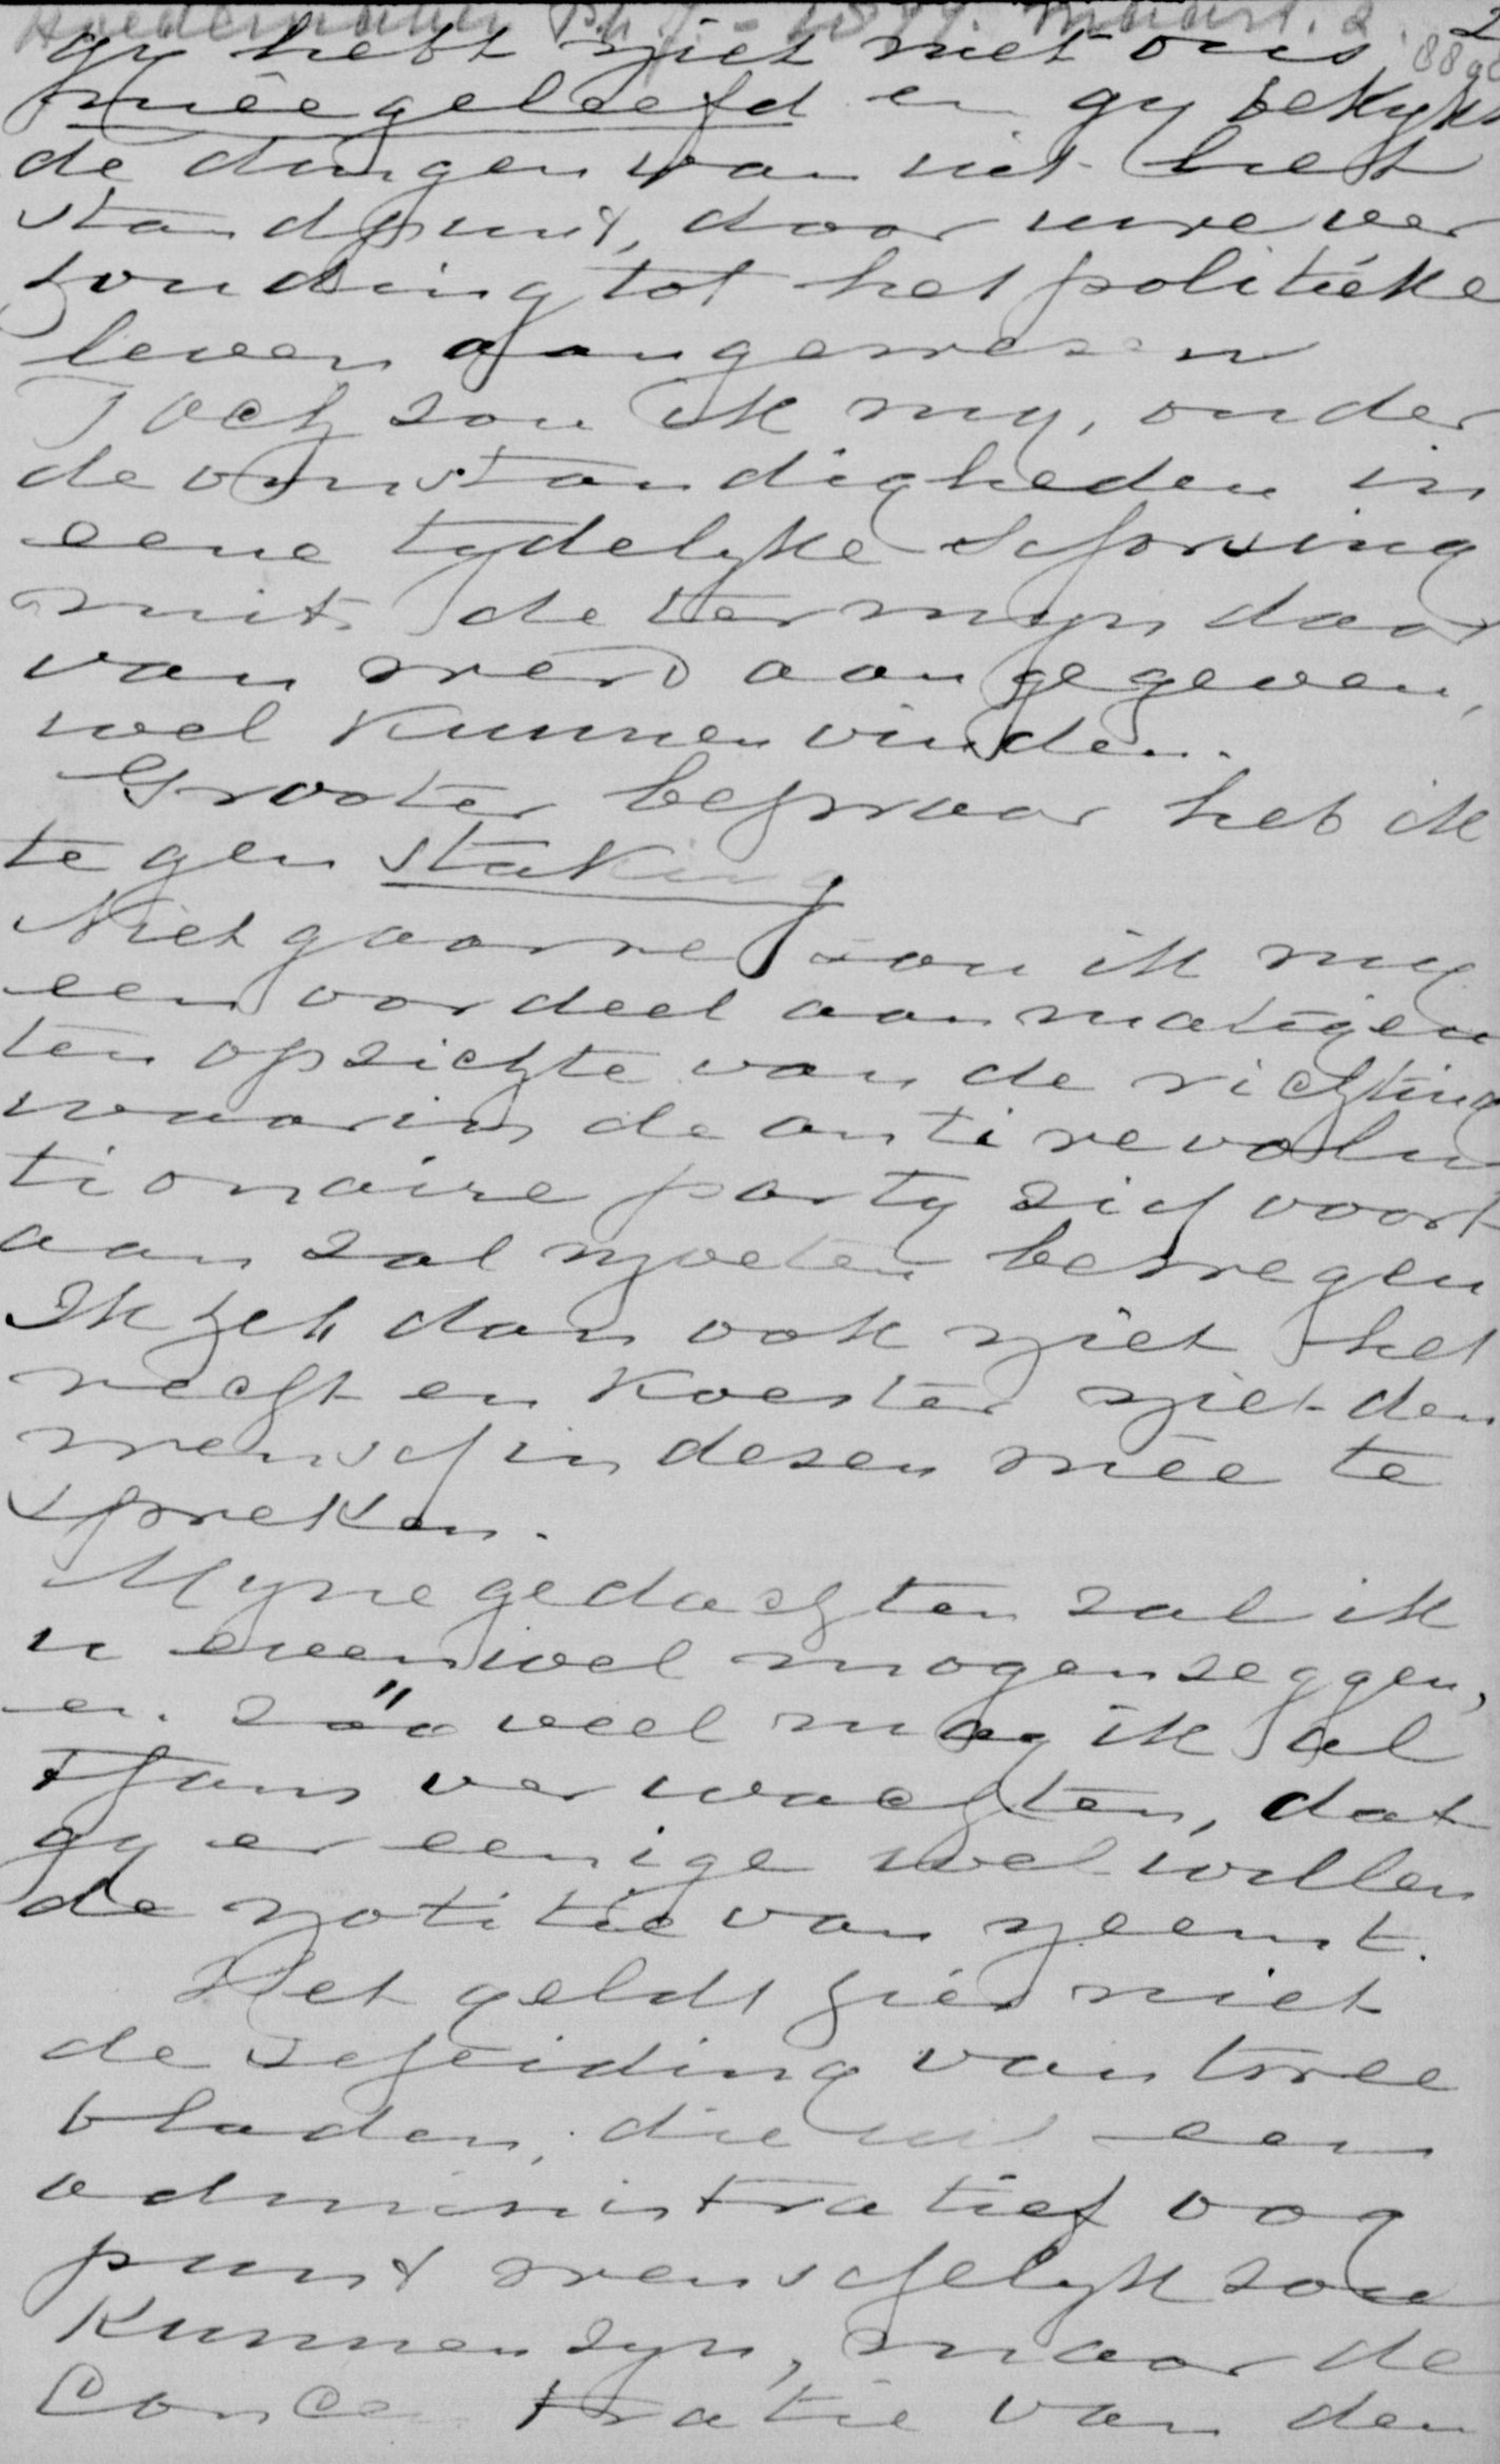 Hoedemaker Ph. J. - 1889. Maart. 2. 2
gy hebt niet met ons
méégeleefd en gy bekykt
de dingen van uit het
standpunt, door uwe ver
houding tot het politieke
leven aangewezen
Toch zou ik my, onder
de omstandigheden in
eene tydelyke schorsing
mits de termyn daar
van werd aangegeven,
wel kunnen vinden.
Grooter bezwaar heb ik
tegen staking
Niet gaarne zou ik my
een oordeel aanmatigen
ten opzichte van de richting
waarin de antirevolu
tionaire party zich voort
aan zal moeten bewegen
Ik heb dan ook niet het
recht en koester niet den
wensch in dezen méé te
spreken.
Myne gedachten zal ik
u evenwel mogen zeggen,
en zóóveel mag ik al
thans verwachten, dat
gy er eenige welwillen
de notitie van neemt.
Het geldt hier niet
de scheiding van twee
bladen, die uit een
administratief oog
punt wenschelyk zou
kunnen zyn, maar de
Concentratie van den